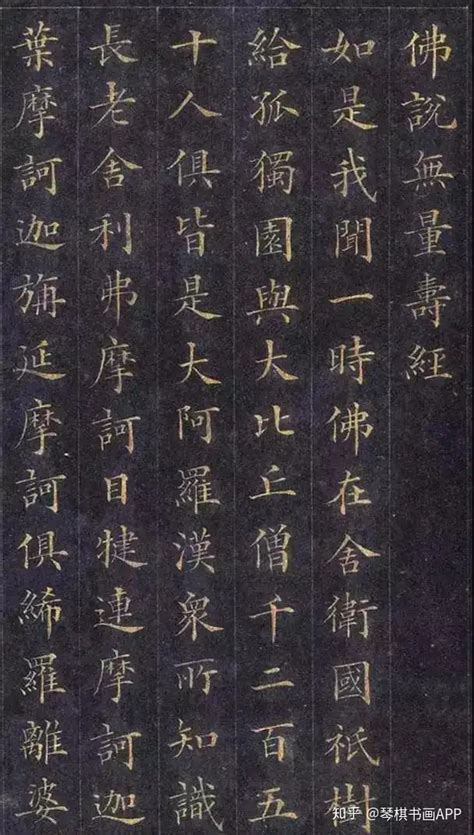 佛說無量壽經
如是我聞一時佛在舍衛國祇樹
給孤獨園與大比丘僧千二百五
十人俱皆是大阿羅漢衆所知識
長老舍利弗摩訶目犍連摩訶迦
葉摩訶迦旃延摩訶俱絺羅離婆
知乎 @琴棋书画APP